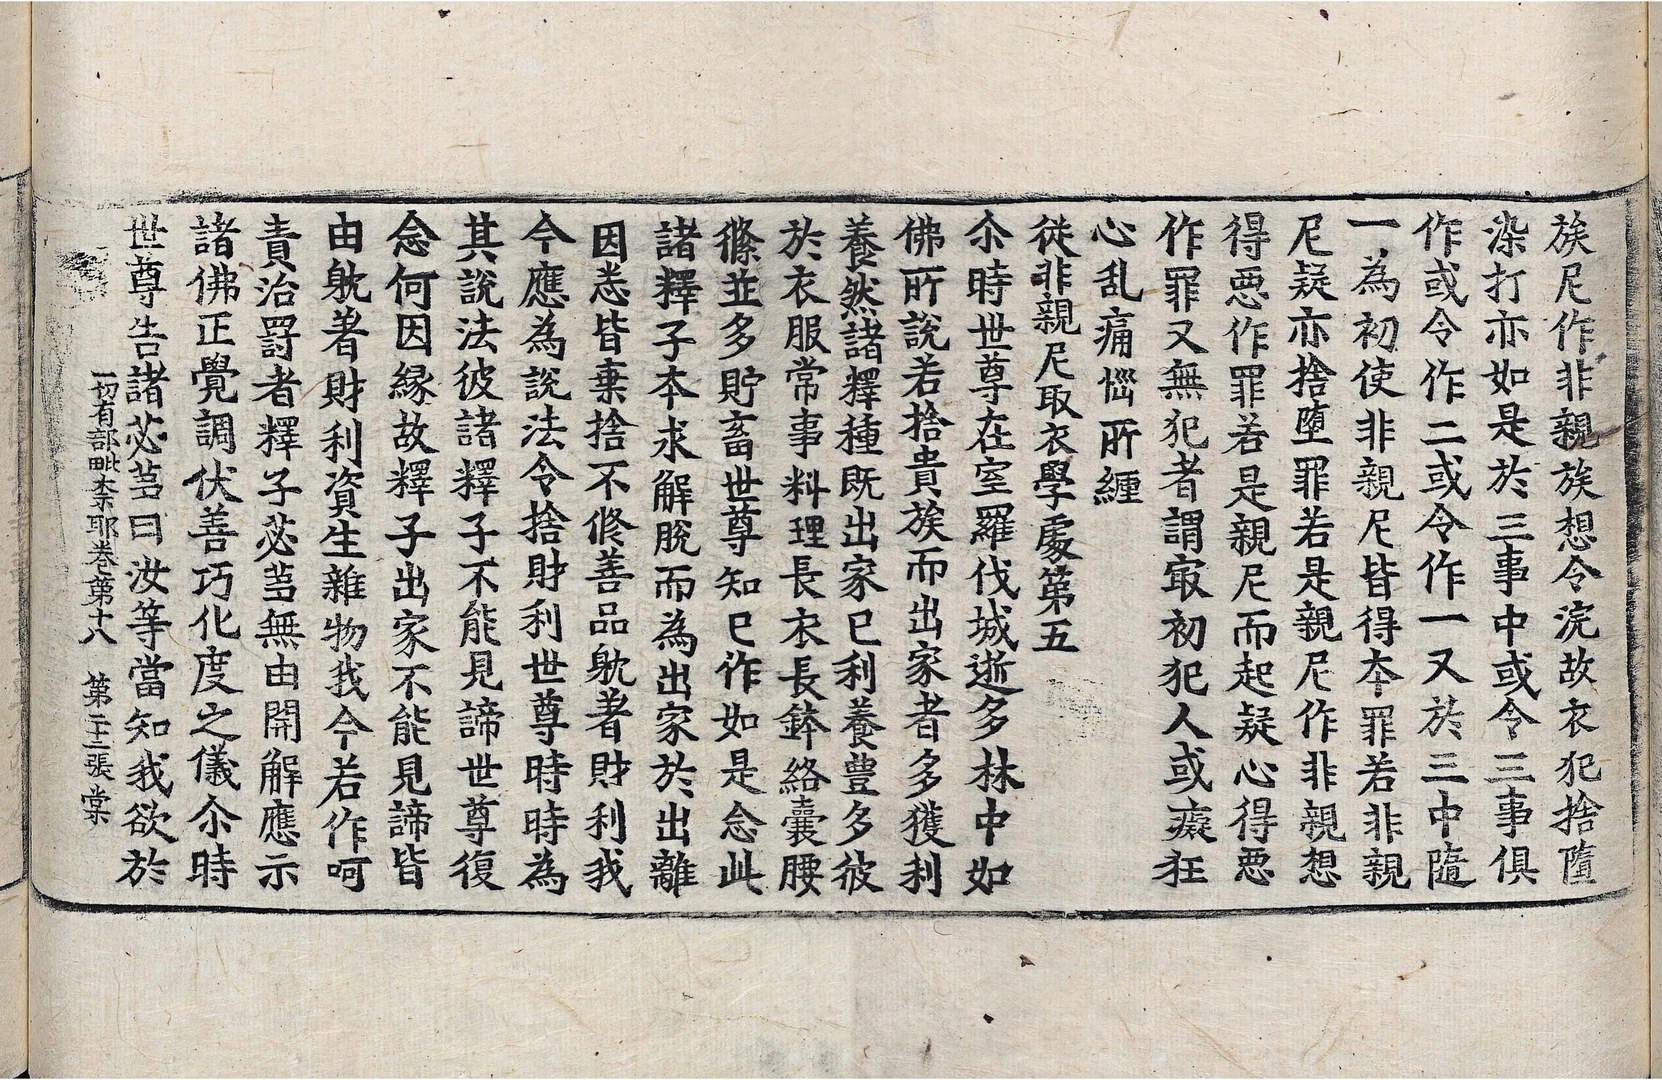 族尼作非親族想令浣故衣犯捨墮
染打亦如是於三事中或令三事俱
作或令作二或令作一又於三中隨
一為初使非親尼皆得本罪若非親
尼疑亦捨墮罪若是親尼作非親想
得惡作罪若是親尼而起疑心得惡
作罪又無犯者謂㝡初犯人或癡狂
心乱痛惱所纏
從非親尼取衣學處第五
尒時世尊在室羅伐城逝多林中如
佛所說若捨貴族而出家者多獲利
養然諸釋種既出家已利養豊多彼
於衣服常事料理長衣長鉢絡囊腰
絛並多貯畜世尊知已作如是念此
諸釋子本求解脫而為出家於出離
因悉皆棄捨不修善品躭著財利我
今應為說法令捨財利世尊時時為
其說法彼諸釋子不能見諦世尊復
念何因緣故釋子出家不能見諦皆
由躭著財利資生雜物我今若作呵
責治罰者釋子苾芻無由開解應示
諸佛正覺調伏善巧化度之儀尒時
世尊告諸苾芻曰汝等當知我欲於
一切有部毗柰耶卷第十八 第二十二張 棠